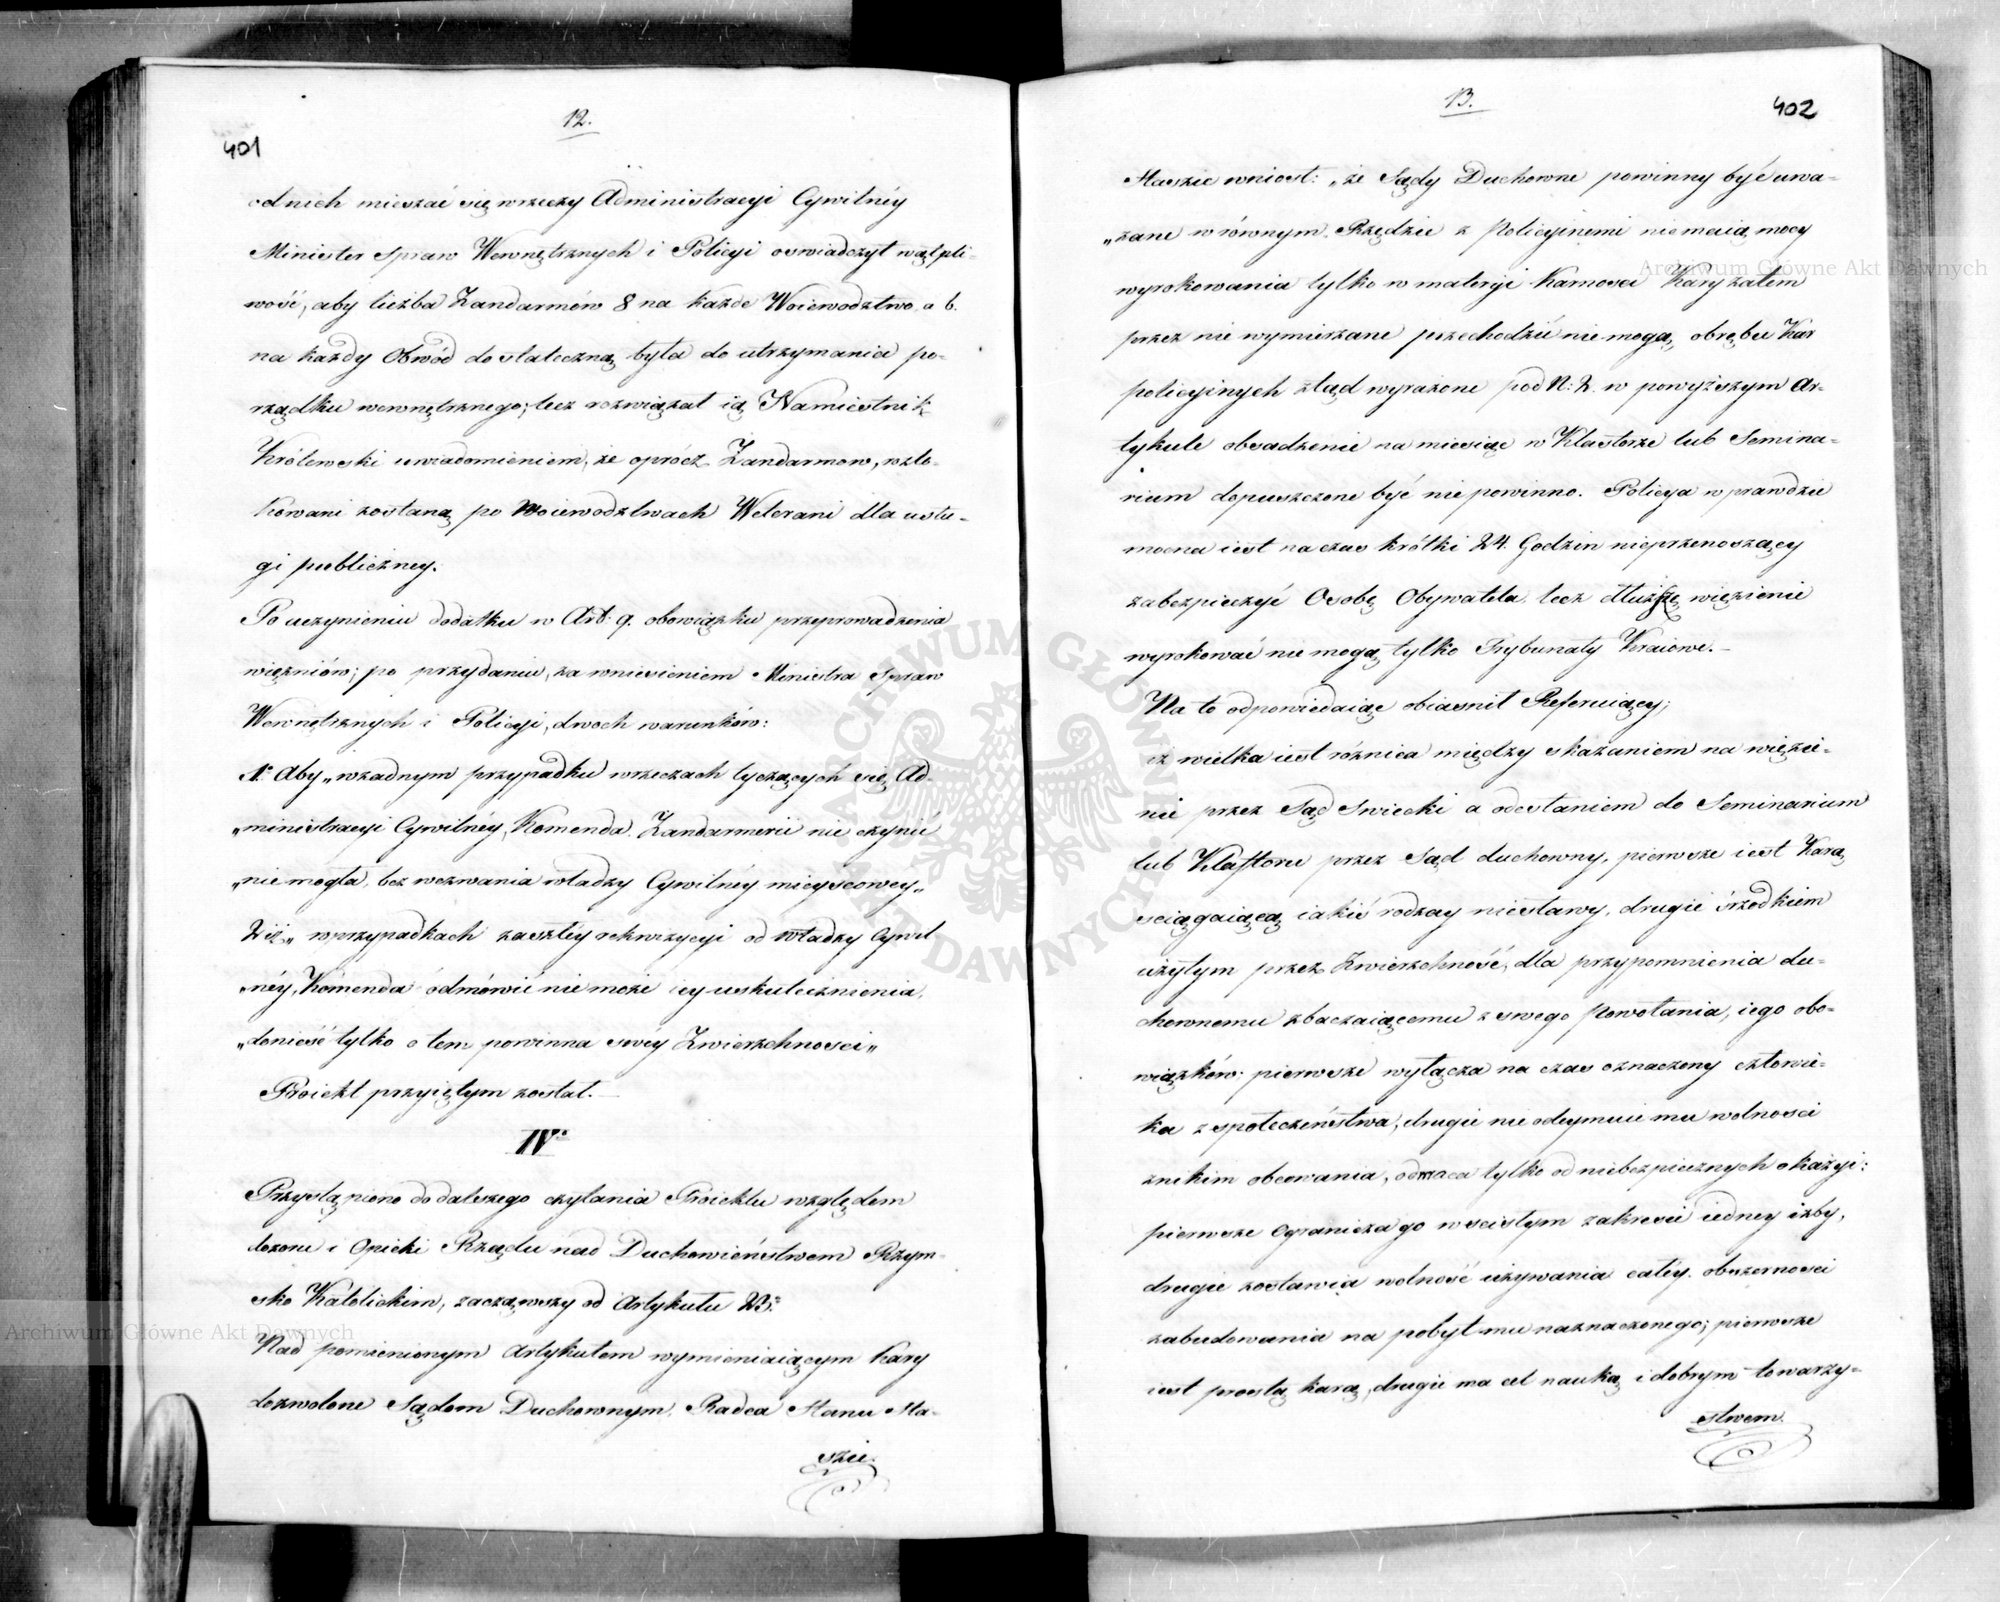 12.
401
od nich mieszać się w rzeczy Administracyi Cywilnéy
Minister Spraw Wewnętrznych i Policyi oswiadczył wątpli-
wość, aby liczba Zandarmów 8 na każde Woiewodztwo, a 6.
na każdy Obwód dostateczną była do utrzymania po-
rządku wewnętrznego; lecz rozwiązał ią Namiestnik
Królewski uwiadomieniem, że oprócz Zandarmow, rozlo-
kowani zostaną po Woiewodztwach Weterani dla usłu-
gi publiczney.
Po uczynieniu dodatku w Art: 9. obowiązku przeprowadzenia
więzniów; po przydaniu, za wniesieniem Ministra Spraw
Wewnętrznych i Policyi, dwoch warunków:
1º Aby „w żadnym przypadku w rzeczach tyczących się Ad-
„ministracyi Cywilnéy, Komenda Zandarmerii nie czynić
„nie mogła, bez wezwania władzy Cywilnéy mieyscowey„
2 iż „w przypadkach zaszłéy rekwizycyi od władzy Cywil
„néy, Komenda odmówić nie może iey uskutecznienia,
„donieść tylko o tem powinna swéy Zwierzchnosci„
Proiekt przyiętym został.
IV.
Przystąpiono do dalszego czytania Proiektu względem
dozoru i Opieki Rządu nad Duchowieństwem Rzym-
sko Katolickim, zacząwszy od Artykułu 23.
Nad pomienionym Artykułem wymieniaiącym Kary
dozwolone Sądom Duchownym, Radca Stanu Sta-
szic.
13.
402
Staszic wniosł: „że Sądy Duchowne powinny być uwa-
„żane w równym Rzędzie z Policyinemi nie maią mocy
wyrokowania tylko w materyi Karnosci Kary zatem
przez nie wymierzane przechodzić nie mogą, obrębu Kar
policyinych ztąd wyrażone pod N: 2. w powyższym Ar-
tykule obsadzenie na miesiąc w Klasztorze lub Semina-
rium dopuszczone być nie powinno. Policya wprawdzie
mocna iest na czas krótki 24. Godzin nieprzenoszący
zabezpieczyć Osobę Obywatela, lecz dłuższe więzienie
wyrokować nie mogą, tylko Trybunały Kraiowe.
Na to odpowiedaiąc obiasnił Referuiący;
iż wielka iest różnica między skazaniem na więzie-
nie przez Sąd Swiecki a odesłaniem do Seminarium
lub Klasztoru przez Sąd duchowny, pierwsze iest Karą
sciągaiącą iakiś rodzay niesławy, drugie śrzodkiem
użytym przez Zwierzchność, dla przypomnienia du-
chownemu zbaczaiącemu z swego Powołania, iego obo-
wiązków; pierwsze wyłącza na czas oznaczony człowie-
ka z społeczeństwa, drugie nie odeymuie mu wolnosci
z nikim obcowania, odwraca tylko od niebezpiecznych okazyi:
pierwsze ogranicza go w scisłym zakresie iedney izby,
drugie zostawia wolność używania całéy obszernosci
zabudowania na pobyt mu naznaczonego; pierwsze
iest prostą karą, drugie ma cel nauką i dobrym towarzy-
stwem.
ARCHIWUM GŁÓWNE AKT DAWNYCH
Archiwum Główne Akt Dawnych
Archiwum Główne Akt Dawnych